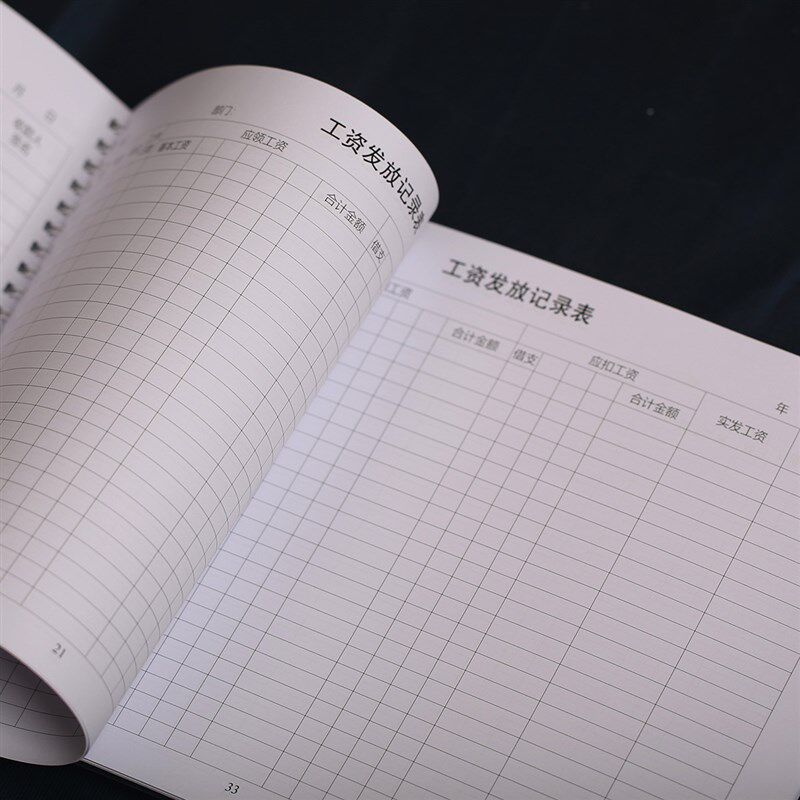 月 日
领款人
签名
工资发放记录表
部门
应领工资
基本工资
合计金额 借支
21
工资发放记录表
年
工资
应扣工资
合计金额 借支
合计金额
实发工资
33